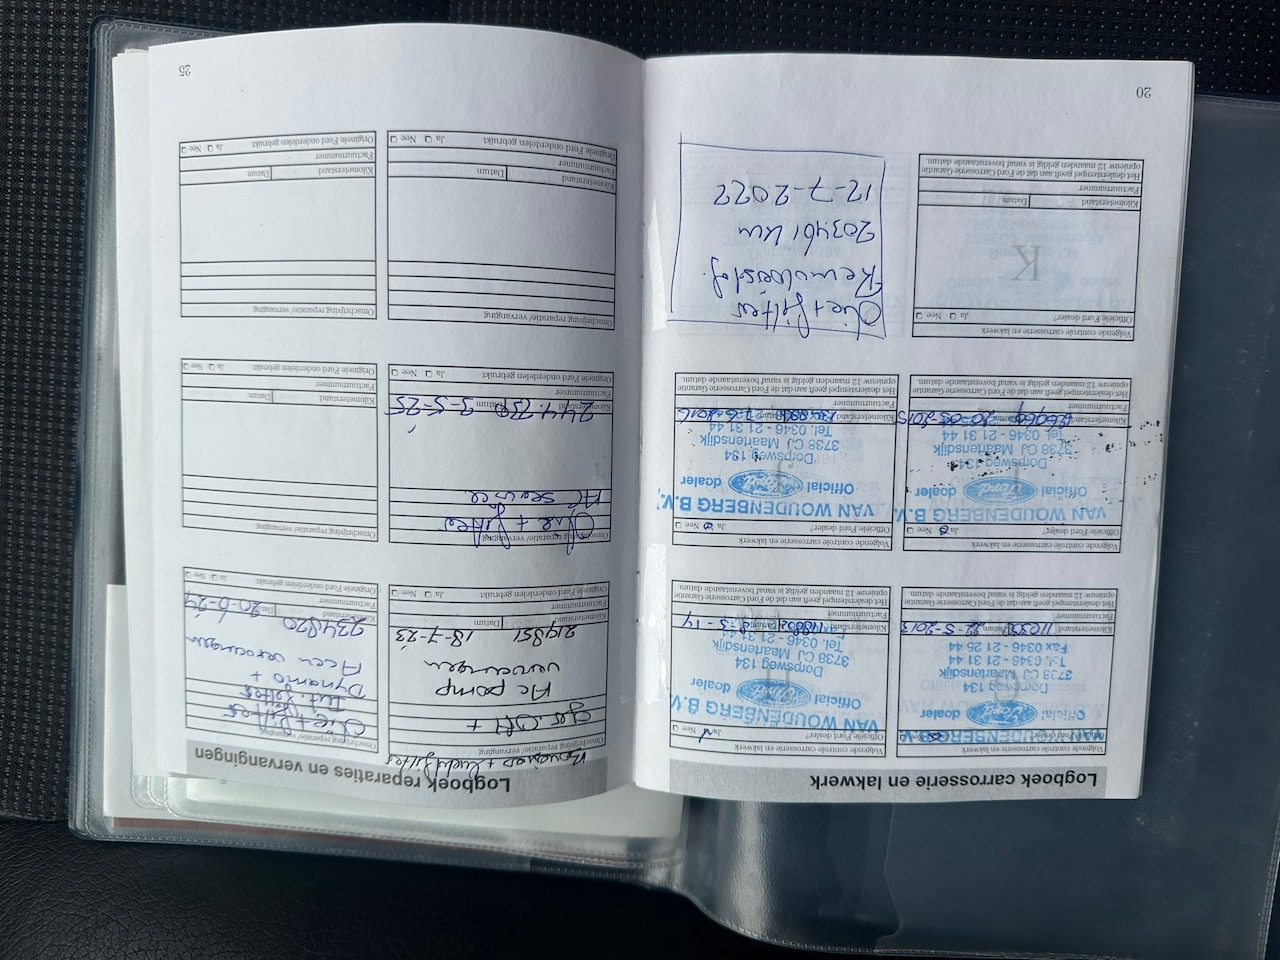 Logboek carrosserie en lakwerk
Volgende controle carrosserie en lakwerk
VAN WOUDENBERG B.V.
Official dealer
Ford
Dorpsweg 134
3738 CJ Maartensdijk
Tel. 0346 - 21 31 44
Fax 0346 - 21 25 44
Kilometerstand Datum 22-5-2013
Factuurnummer
Het dealerstempel geeft aan dat de Ford Carrosserie Garantie
opnieuw 12 maanden geldig is vanaf bovenstaande datum.
Volgende controle carrosserie en lakwerk
Officiële Ford dealer? Ja Nee
VAN WOUDENBERG B.V.
Official dealer
Dorpsweg 134
3738 CJ Maartensdijk
Tel. 0346 - 21 31 44
Kilometerstand
Factuurnummer
Het dealerstempel geeft aan dat de Ford Carrosserie Garantie
opnieuw 12 maanden geldig is vanaf bovenstaande datum.
Volgende controle carrosserie en lakwerk
Officiële Ford dealer? Ja Nee
VAN WOUDENBERG B.V.
Official dealer
Ford
Dorpsweg 134
3738 CJ Maartensdijk
Tel. 0346 - 21 31 44
Kilometerstand 20-05-2015
Factuurnummer
Het dealerstempel geeft aan dat de Ford Carrosserie Garantie
opnieuw 12 maanden geldig is vanaf bovenstaande datum.
Volgende controle carrosserie en lakwerk
Officiële Ford dealer? Ja Nee
VAN WOUDENBERG B.V.
Official dealer
Ford
Dorpsweg 134
3738 CJ Maartensdijk
Tel. 0346 - 21 31 44
Kilometerstand
Factuurnummer
Het dealerstempel geeft aan dat de Ford Carrosserie Garantie
opnieuw 12 maanden geldig is vanaf bovenstaande datum.
Volgende controle carrosserie en lakwerk
Officiële Ford dealer? Ja Nee
K
Kilometerstand Datum
Factuurnummer
Het dealerstempel geeft aan dat de Ford Carrosserie Garantie
opnieuw 12 maanden geldig is vanaf bovenstaande datum.
Olie + filter
Remvloeistof.
203461 km
12-7-2022
20
Logboek reparaties en vervangingen
+ luchtfilter
Omschrijving reparatie/ vervanging
AC pomp
vervangen
219851 18-7-23
Kilometerstand Datum
Factuurnummer
Originele Ford onderdelen gebruikt Ja Nee
Omschrijving reparatie/ vervanging
Olie + filter
Int. filter
Dynamo +
Accu vervangen
234820
Kilometerstand Datum 20-6-24
Factuurnummer
Originele Ford onderdelen gebruikt Ja Nee
Omschrijving reparatie/ vervanging
Olie + filter
AC service
244730 3-5-25
Kilometerstand Datum
Factuurnummer
Originele Ford onderdelen gebruikt Ja Nee
Omschrijving reparatie/ vervanging
Kilometerstand Datum
Factuurnummer
Originele Ford onderdelen gebruikt Ja Nee
Omschrijving reparatie/ vervanging
Kilometerstand Datum
Factuurnummer
Originele Ford onderdelen gebruikt Ja Nee
Omschrijving reparatie/ vervanging
Kilometerstand Datum
Factuurnummer
Originele Ford onderdelen gebruikt Ja Nee
25